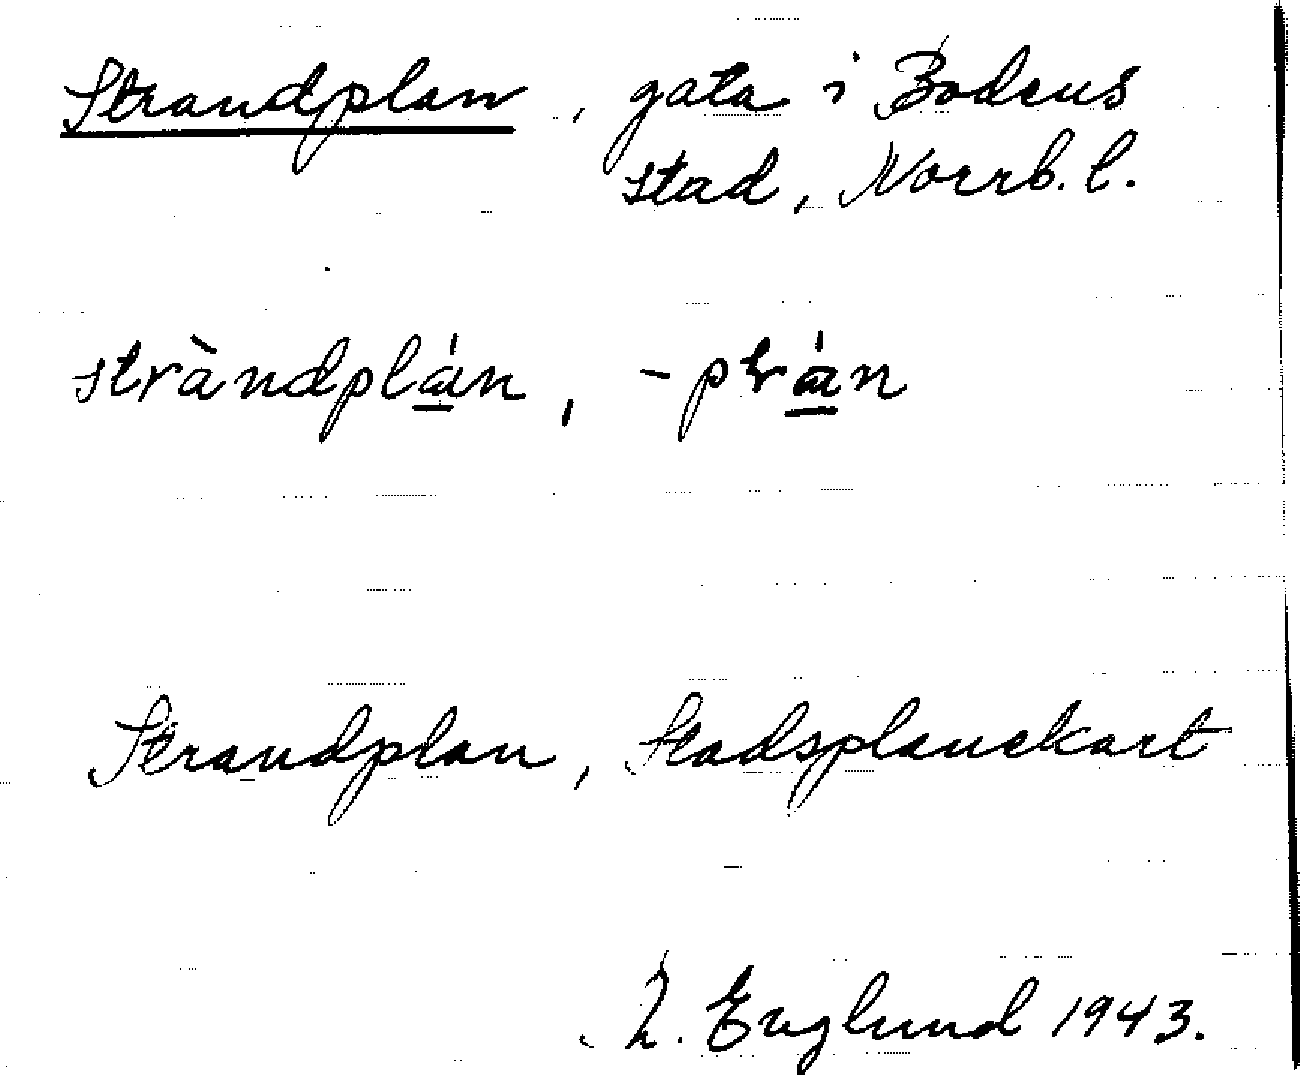 Strandplan, gata i Bodens
stad, Norrb. l.
stràndplá̱n, -prá̱n
Strandplan, Stadsplanekart
Englund 1943.